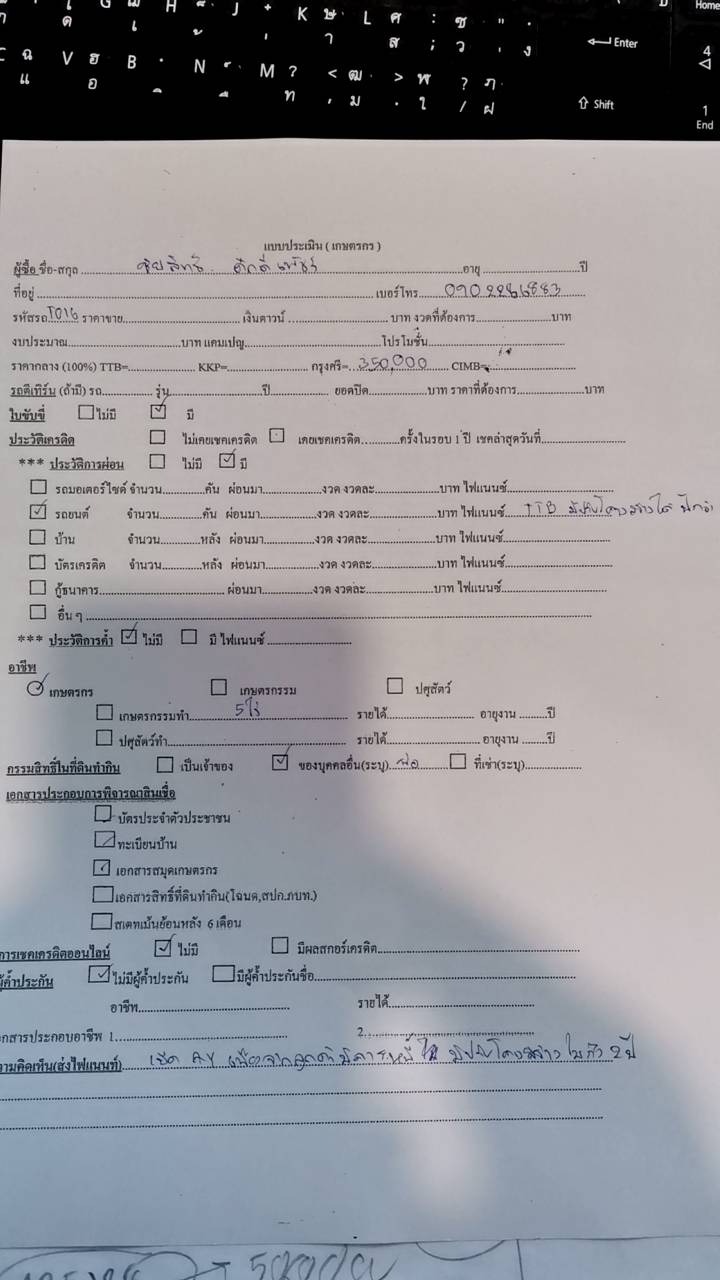 G H J K L : " Home
ค เ ้ ่ า ษ ส ศ ; ว ซ ง . Enter
C V B N M ? < > ? 4
แ ฉ อ ฮ ิ ื ท , ม ฒ . ใ ฬ / ฝ ฦ Shift 1 End
แบบประเมิน ( เกษตรกร )
ผู้ซื้อ ชื่อ-สกุล ชัยสิทธิ์ อายุ ปี
ที่อยู่ เบอร์โทร 0902286883
รหัสรถ T016 ราคาขาย เงินดาวน์ บาท งวดที่ต้องการ บาท
งบประมาณ บาท แคมเปญ โปรโมชั่น
ราคากลาง (100%) TTB= KKP= กรุงศรี= 350,000 CIMB=
รถตีเทิร์น (ถ้ามี) รถ รุ่น ปี ยอดปิด บาท ราคาที่ต้องการ บาท
ใบขับขี่ ไม่มี มี
ประวัติเครดิต ไม่เคยเชคเครดิต เคยเชคเครดิต ครั้งในรอบ 1 ปี เชคล่าสุดวันที่
*** ประวัติการผ่อน ไม่มี มี
รถมอเตอร์ไซต์ จำนวน คัน ผ่อนมา งวด งวดละ บาท ไฟแนนซ์
รถยนต์ จำนวน คัน ผ่อนมา งวด งวดละ บาท ไฟแนนซ์ TTB
บ้าน จำนวน หลัง ผ่อนมา งวด งวดละ บาท ไฟแนนซ์
บัตรเครดิต จำนวน หลัง ผ่อนมา งวด งวดละ บาท ไฟแนนซ์
กู้ธนาคาร ผ่อนมา งวด งวดละ บาท ไฟแนนซ์
อื่น ๆ
*** ประวัติการค้ำ ไม่มี มี ไฟแนนซ์
อาชีพ
เกษตรกร เกษตรกรรม ปศุสัตว์
เกษตรกรรมทำ 5ไร่ รายได้ อายุงาน ปี
ปศุสัตว์ทำ รายได้ อายุงาน ปี
กรรมสิทธิ์ในที่ดินทำกิน เป็นเจ้าของ ของบุคคลอื่น(ระบุ) พ่อ ที่เช่า(ระบุ)
เอกสารประกอบการพิจารณาสินเชื่อ
บัตรประจำตัวประชาชน
ทะเบียนบ้าน
เอกสารสมุดเกษตรกร
เอกสารสิทธิ์ที่ดินทำกิน(โฉนด,สปก.ภบท.)
สเตทเม้นย้อนหลัง 6 เดือน
การเชคเครดิตออนไลน์ ไม่มี มีผลสกอร์เครดิต
ผู้ค้ำประกัน ไม่มีผู้ค้ำประกัน มีผู้ค้ำประกันชื่อ
อาชีพ รายได้
เอกสารประกอบอาชีพ 1. 2.
ความคิดเห็น(ส่งไฟแนนท์) เชค AY เนื่องจากลูกค้ามีภาระหนี้ 2 ปี